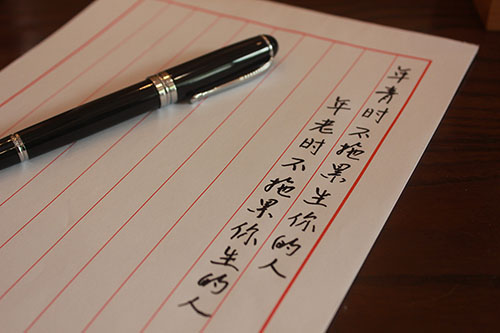 年青时不拖累生你的人
年老时不拖累你生的人